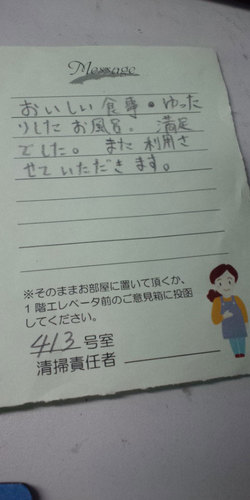 Message
おいしい食事・ゆった
りしたお風呂。満足
でした。また利用さ
せていただきます。
※そのままお部屋に置いて頂くか、
1階エレベータ前のご意見箱に投函
してください。
413号室
清掃責任者